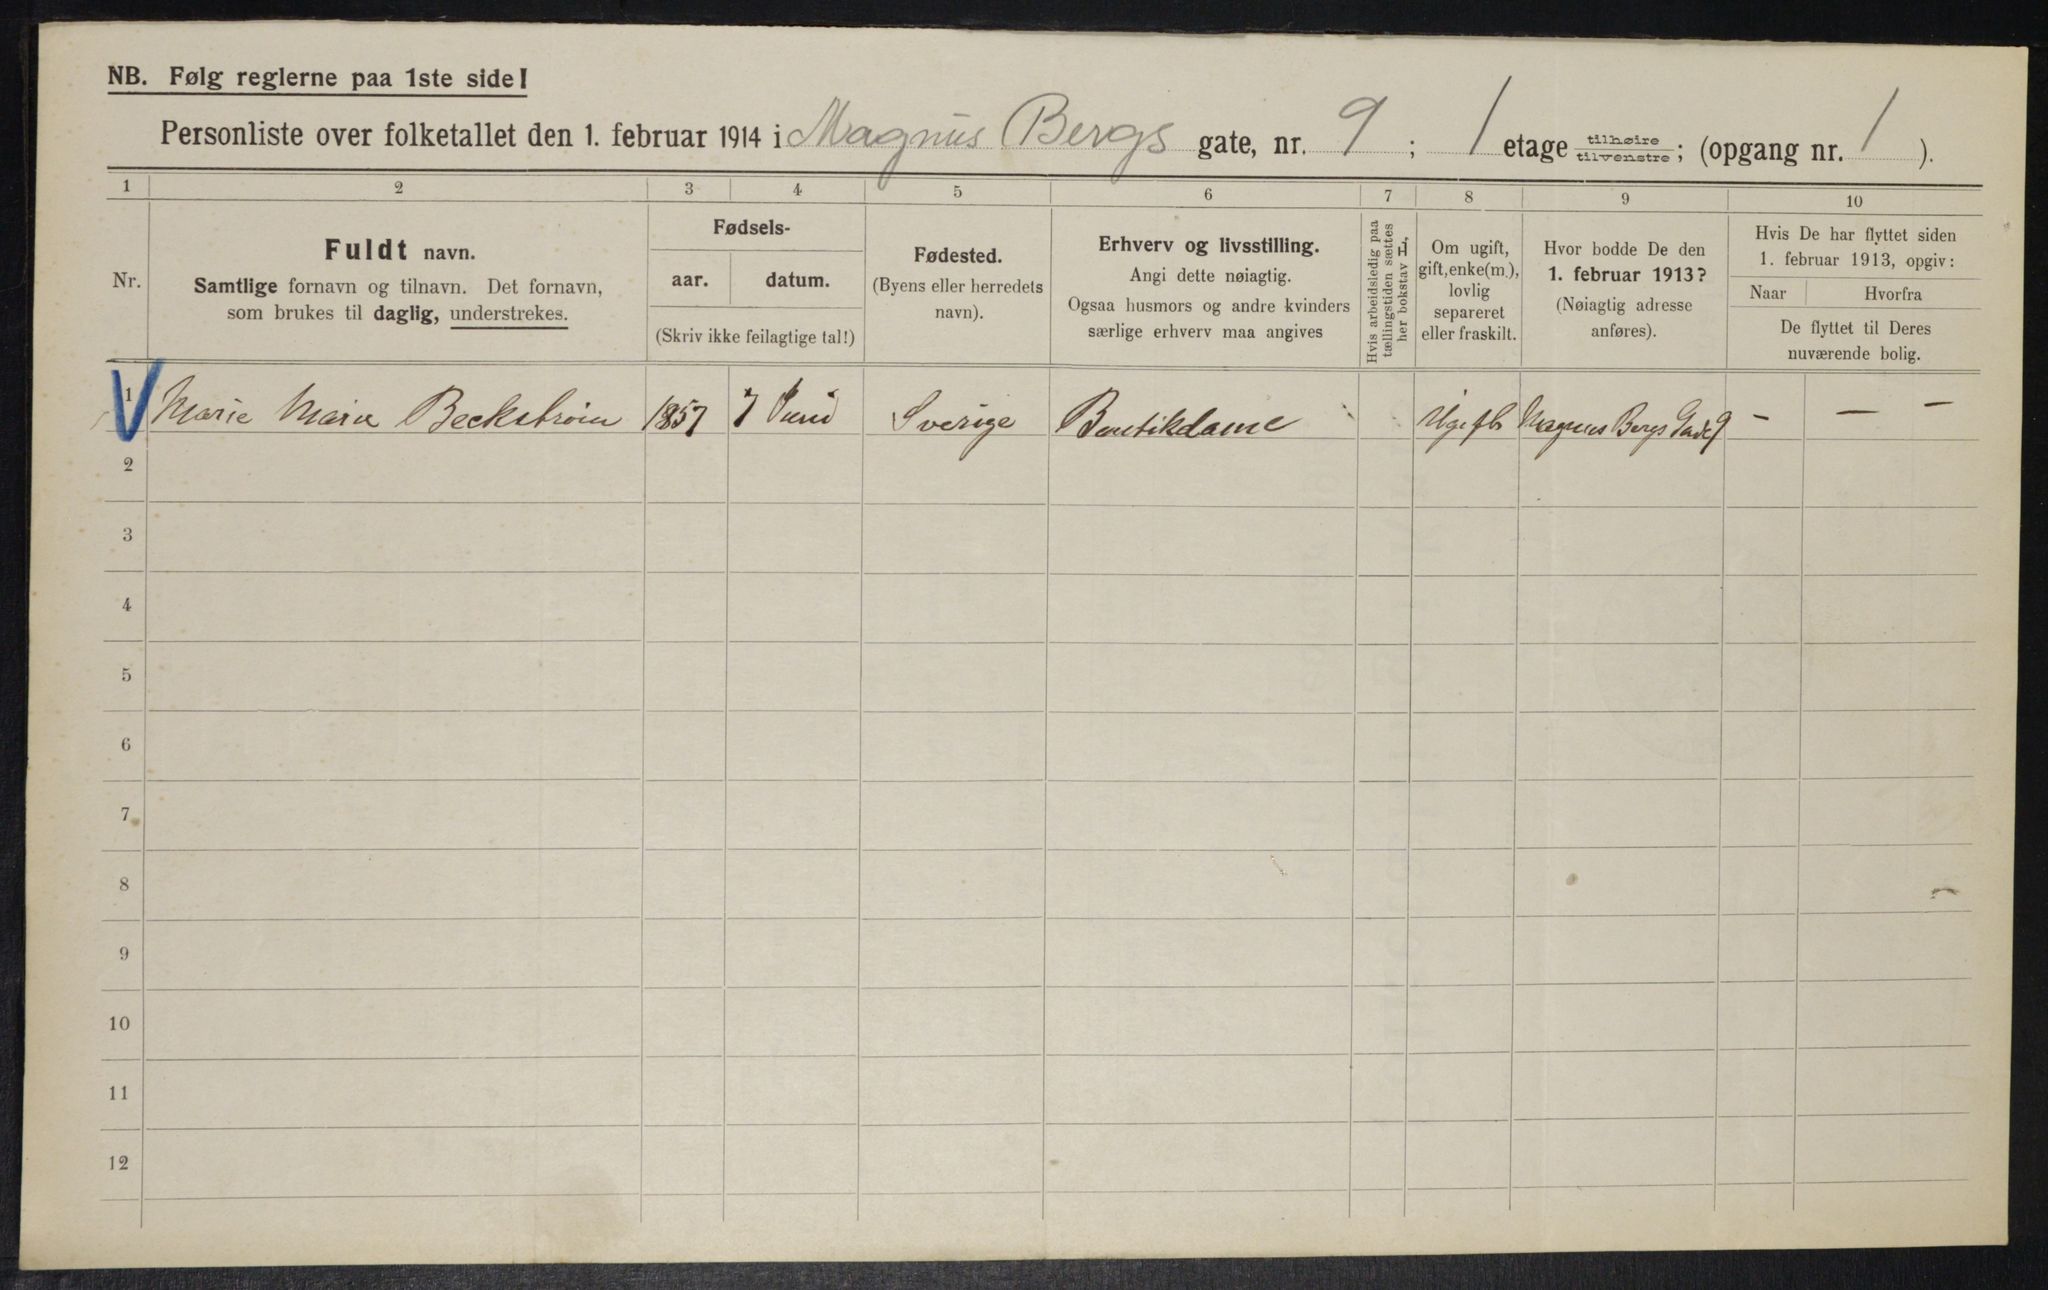 NB. Følg reglerne paa 1ste side!
Personliste over folketallet den 1. februar 1914 i Magnus Bergs gate, nr. 9 ; 1 etage tilhøire/tilvenstre; (opgang nr. 1 ).
1 2 3 4 5 6 7 8 9 10
Nr.
Fuldt navn.
Samtlige fornavn og tilnavn. Det fornavn,
som brukes til daglig, understrekes.
Fødsels-
aar. datum.
(Skriv ikke feilagtige tal!)
Fødested.
(Byens eller herredets
navn).
Erhverv og livsstilling.
Angi dette nøiagtig.
Ogsaa husmors og andre kvinders
særlige erhverv maa angives
Hvis arbeidsledig paa
tællingstiden sættes
her bokstav L,
Om ugift,
gift, enke(m.),
lovlig
separeret
eller fraskilt.
Hvor bodde De den
1. februar 1913?
(Nøiagtig adresse
anføres).
Hvis De har flyttet siden
1. februar 1913, opgiv:
Naar Hvorfra
De flyttet til Deres
nuværende bolig.
1 Marie Beckstrøm 1857 7 Juni Sverige Butikdame Ugift Magnus Bergs Gade 9 – – –
2
3
4
5
6
7
8
9
10
11
12